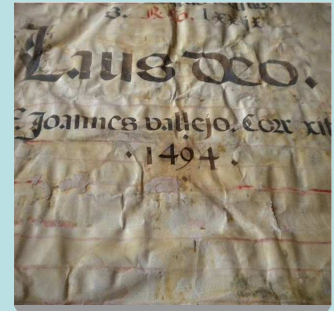 Laus deo.
Joannes vallejo. Cor xit
. 1494 .